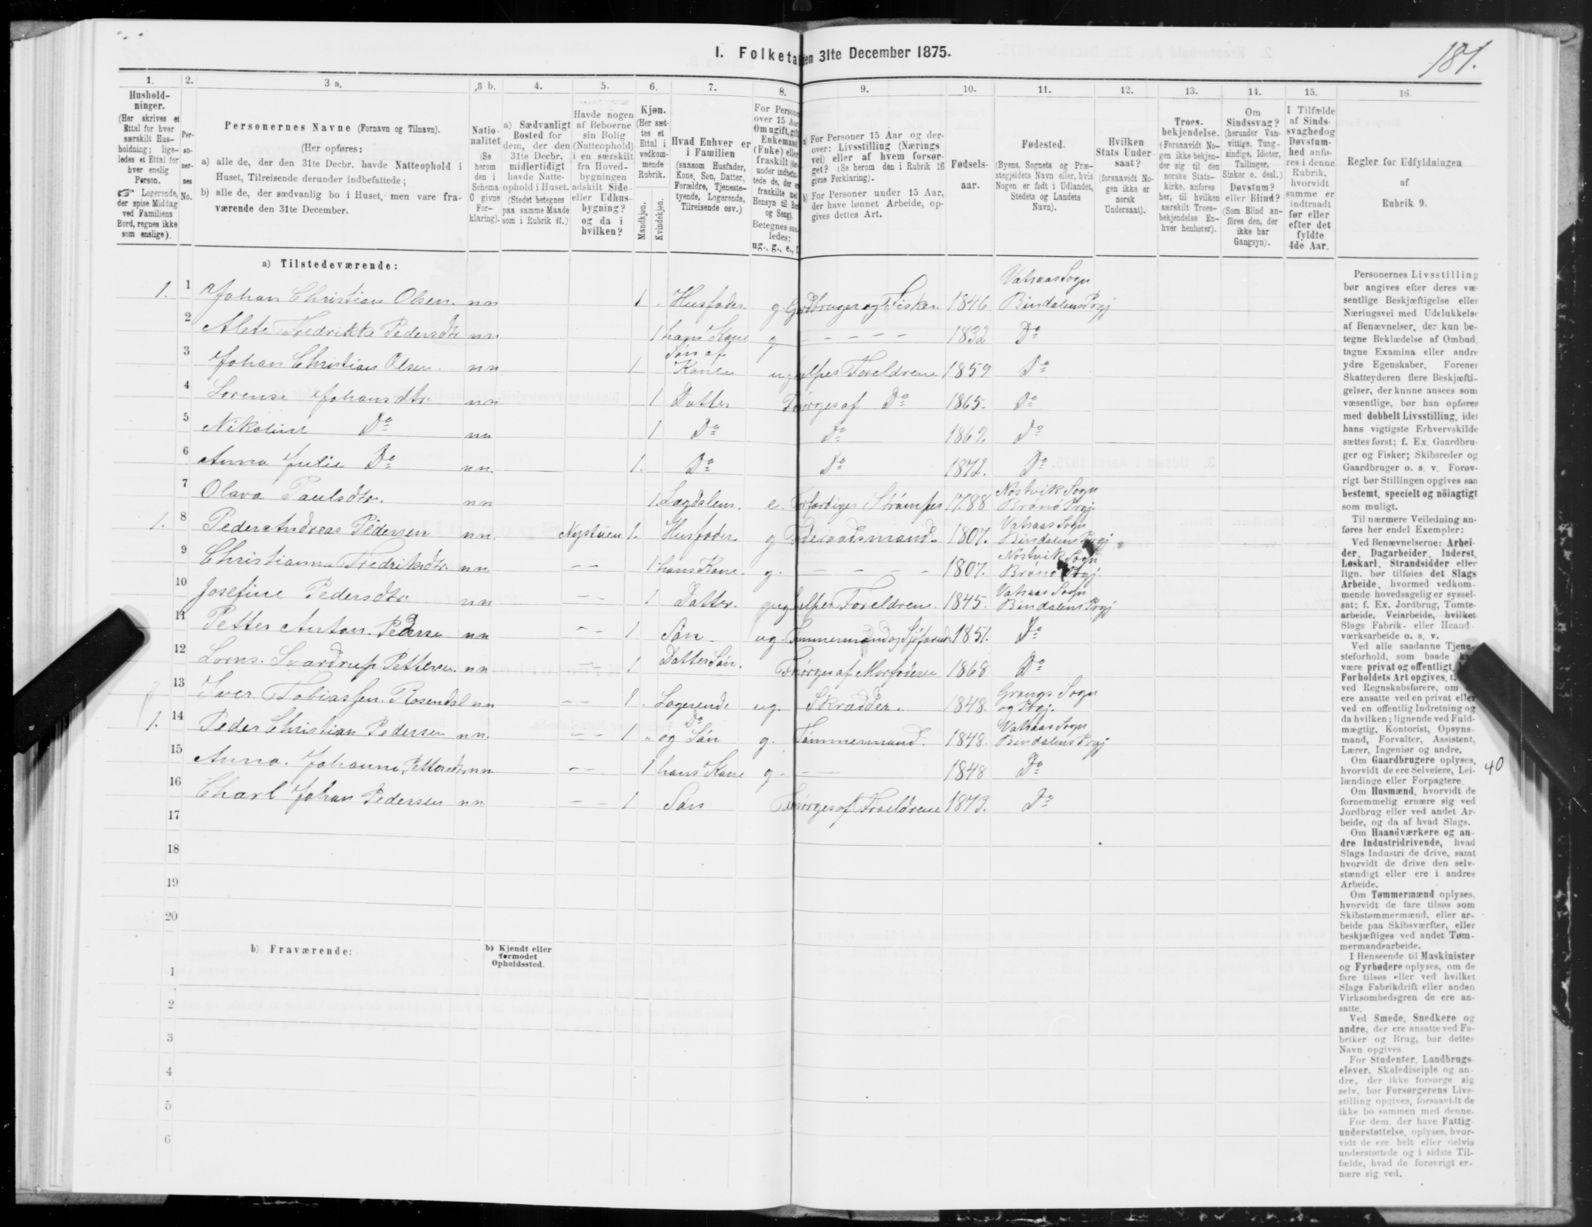 181.
I. Folketa en 31te December 1875.
1. 2. 3 a. 3 b. 4. 5. 6. 7. 8. 9. 10. 11. 12. 13. 14. 15. 16.
Hushold-
ninger.
(Her skrives et
Ettal for hver
særskilt Hus-
holdning; lige-
ledes et Ettal for
hver enslig
Person.
Logerende,
der spise Middag
ved Familiens
Bord, regnes ikke
som enslige).
Per-
so-
ner-
nes
No.
Personernes Navne (Fornavn og Tilnavn).
(Her opføres:
a) alle de, der den 31te Decbr. havde Natteophold i
Huset, Tilreisende derunder indbefattede;
b) alle de, der sædvanlig bo i Huset, men vare fra-
værende den 31te December.
Natio-
nalitet
(Se
herom
den i
Schema
C givne
For-
klaring).
a) Sædvanligt
Bosted for
dem, der den
31te Decbr.
midlertidigt
havde Natte-
ophold i Huset.
(Stedet betegnes
paa samme Maade
som i Rubrik 11.)
Havde nogen
af Beboerne
sin Bolig
(Natteophold)
i en særskilt
fra Hoved-
bygningen
adskilt Side-
eller Udhus-
bygning?
og da i
hvilken?
Kjøn.
(Her sæt-
tes et
Ettal i
vedkom-
mende
Rubrik.
Mandkjøn.
Kvindekjøn.
Hvad Enhver er
i Familien
(saasom Husfader,
Kone, Søn, Datter,
Forældre, Tjeneste-
tyende, Logerende,
Tilreisende osv.)
For Person
over 15 Aar
Om ugift, gift
Enkemand
(Enke) eller
fraskilt
under
tede de, der
fraskilte
Hensyn til B
og Seng).
Betegnes saa
ledes:
ug., g., e.,
a) For Personer 15 Aar og der-
over: Livsstilling (Nærings
vei) eller af hvem forsør-
get? (Se herom den i Rubrik 16
givne Forklaring).
b) For Personer under 15 Aar,
der have lønnet Arbeide, op-
gives dettes Art.
Fødsels-
aar.
Fødested.
(Byens, Sognets og Præ-
stegjeldets Navn eller, hvis
Nogen er født i Udlandet,
Stedets og Landets
Navn).
Hvilken
Stats Under-
saat?
(forsaavidt No-
gen ikke er
norsk
Undersaat).
Troes-
bekjendelse.
(Forsaavidt No-
gen ikke bekjen-
der sig til den
norske Stats-
kirke, anføres
her, til hvilken
særskilt Troes-
bekjendelse En-
hver henhører).
Om
Sindssvag?
(herunder Van-
vittige, Tung-
sindige, Idioter,
Tullinger,
Sinker o. desl.)
Døvstum?
eller Blind?
(Som Blind an-
føres den, der
ikke har
Gangsyn).
I Tilfælde
af Sinds-
svaghed og
Døvstum-
hed anfø-
res i denne
Rubrik,
hvorvidt
samme er
indtraadt
før eller
efter det
fyldte
4de Aar.
Regler for Udfyldningen
af
Rubrik 9.
a) Tilstedeværende:
1. 1 Johan Christian Olsen. nn 1 Husfader g Gaardbruger og Fisker 1846 Vatsaas Sogn Bindalens Prgj
2 Alete Fredrikke Pedersdtr nn 1 hans Kone g - - - - - 1832 Do
3 Johan Christian Olsen. nn 1 Søn af Konen ug hjelper Foreldrene 1859 Do
4 Lorense Johansdtr nn 1 Datter Forsørges af Do 1865. Do
5 Nikoline Do nn 1 Do Do 1869 Do
6 Anna Julie Do nn. 1. Do Do 1872. Do
7 Olava Paulsdtr. nn 1 Lægdslem. e. Forfærdiger Strømper 1788 Nostvik Sogn Brønø Prgj
1. 8 Peder Andreas Pedersen nn. Nystuen 1. Husfader g Føderaadsmand. 1807. Vatsaas Sogn Bindalens Prgj
9 Christianna Fredriksdtr nn - - 1 hans Kone. g. - - - - 1807. Nostvik Sogn Brønø Prgj.
10 Josefine Pedersdtr nn - - 1 Datter. ug hjelper Foreldrene 1845. Vatsaas Sogn Bindalens Prgj
11 Petter Anton Pederse nn - - 1 Søn. ug Tømmermand og 1851. Do
12 Svardrup Pettersen nn 1 Datter Søn. Forsørges af Morforeldre 1868 Do
13 Iver Tobiassen Rosendal nn - - 1 Logerende ug. Skrædder. 1848. Grongs Sogn og Prgj.
1. 14 Peder Christian Pedersen nn. - - 1 Do og Søn g. Tømmermand. 1848. Vatsaas Sogn Bindalens Prgj
15 Anna Johanna Pettersdtr nn - - 1 hans Kone g - - - 1848 Do
16 Charl Johan Pedersen nn - - 1 Søn Forsørges af Foreldrene 1873. Do
17
18
19
20
b) Fraværende:
b) Kjendt eller
formodet
Opholdssted.
1
2
3
4
5
6
Personernes Livsstilling
bør angives efter deres væ-
sentlige Beskjæftigelse eller
Næringsvei med Udelukkelse
af Benævnelser, der kun be-
tegne Beklædelse af Ombud,
tagne Examina eller andre
ydre Egenskaber. Forener
Skatteyderen flere Beskjæfti-
gelser, der kunne ansees som
væsentlige, bør han opføres
med dobbelt Livsstilling, idet
hans vigtigste Erhvervskilde
sættes først; f. Ex. Gaardbru-
ger og Fisker; Skibsreder og
Gaardbruger o. s. v. Forøv-
rigt bør Stillingen opgives saa
bestemt, specielt og nöiagtigt
som muligt.
Til nærmere Veiledning an-
føres her endel Exempler:
Ved Benævnelserne: Arbei-
der, Dagarbeider, Inderst,
Løskarl, Strandsidder eller
lign. bør tilføies det Slags
Arbeide, hvormed vedkom-
mende hovedsagelig er syssel-
sat; f. Ex. Jordbrug, Tomte-
arbeide, Veiarbeide, hvilket
Slags Fabrik- eller Haand-
værksarbeide o. s. v.
Ved alle saadanne Tjene-
steforhold, som baade
være privat og offentligt,
Forholdets Art opgives,
ved Regnskabsførere, om
ere ansatte ved en privat eller
ved en offentlig Indretning og
da hvilken; lignende ved Fuld-
mægtig, Kontorist, Opsyns-
mand, Forvalter, Assistent,
Lærer, Ingeniør og andre.
Om Gaardbrugere oplyses,
hvorvidt de ere Selveiere, Lei-
lændinge eller Forpagtere.
Om Husmænd, hvorvidt de
fornemmelig ernære sig ved
Jordbrug eller ved andet Ar-
beide, og da af hvad Slags.
Om Haandværkere og an-
dre Industridrivende, hvad
Slags Industri de drive, samt
hvorvidt de drive den selv-
stændigt eller ere i andres
Arbeide.
Om Tømmermænd oplyses,
hvorvidt de fare tilsøs som
Skibstømmermænd, eller ar-
beide paa Skibsværfter, eller
beskjæftiges ved andet Tøm-
mermandsarbeide.
I Henseende til Maskinister
og Fyrbødere oplyses, om de
fare tilsøs eller ved hvilket
Slags Fabrikdrift eller anden
Virksomhedsgren de ere an-
satte.
Ved Smede, Snedkere og
andre, der ere ansatte ved Fa-
briker og Brug, bør dettes
Navn opgives
For Studenter, Landbrugs-
elever, Skoledisciple og an-
dre, der ikke forsørge sig
selv, bør Forsørgerens Livs-
stilling opgives, forsaavidt de
ikke bo sammen med denne.
For dem, der have Fattig-
understøttelse, oplyses, hvor-
vidt de ere helt eller delvis
understøttede og i sidste Til-
fælde, hvad de forøvrigt er-
nære sig ved.
40